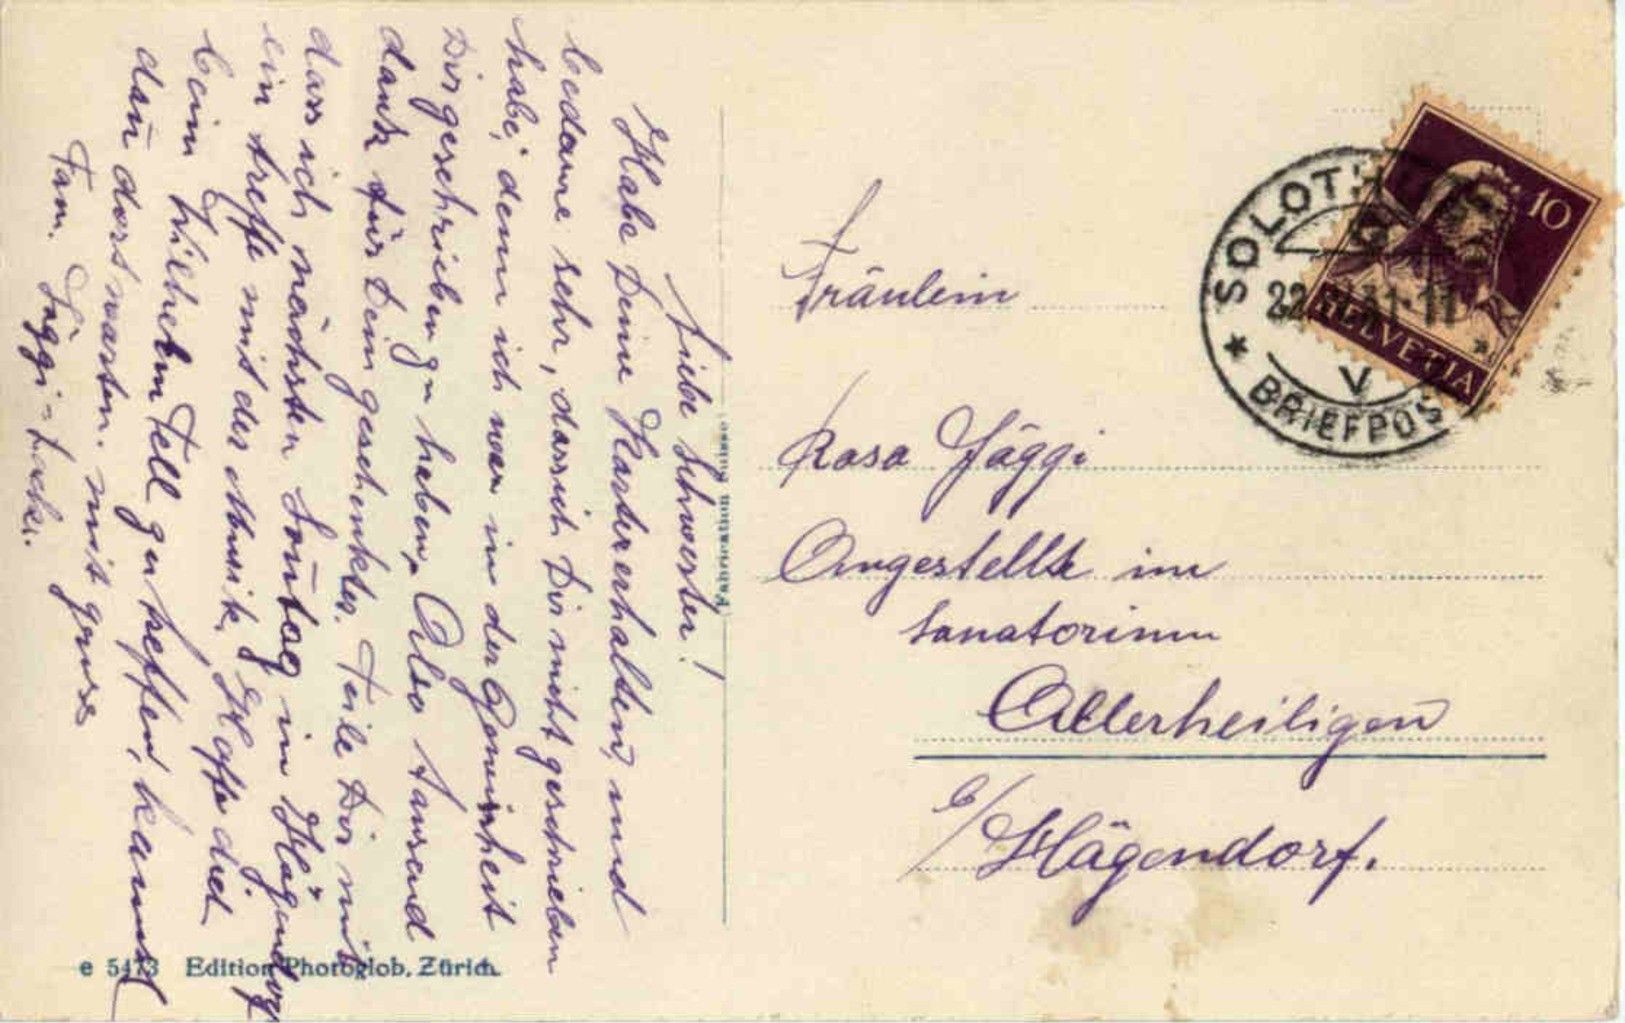 Liebe Schwester!
Habe Deine Karte erhalten, und
bedaure sehr, dass ich Dir nicht geschrieben
habe, denn ich war in der Gewissheit
Dir geschrieben zu haben. Also tausend
dank für Dein geschenktes. Teile Dir mit
dass ich nächsten Son̄tag in Hägendorf
ein treffe mit der Musik. Hoffe dich
beim Wilhelm Tell zu treffen, kannst
dan̄ dort warten. mit gruss
Fam. Jäggi-
Fräulein
Rosa Jäggi
Angestellte im
Sanatorium
Allerheiligen
b/Hägendorf.
10
HELVETIA
SOLOTH
22. 31-11
V
BRIEFPOS
Fabrication Suisse
e 5473 Edition Photoglob, Zürich.